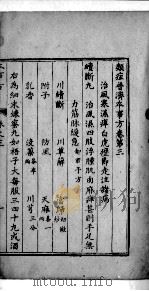 類証普濟本事方卷第三
治風寒濕痺白虎歷節走注諸病
續斷丸 治風濕四肢浮腫肌肉麻痺甚則手足無
力筋脉緩急
川續斷 川萆解 當歸
附子 防風 天麻各一
乳香 没藥各半 川芎三分
右為細末煉蜜丸如梧子大每服三四十丸或酒